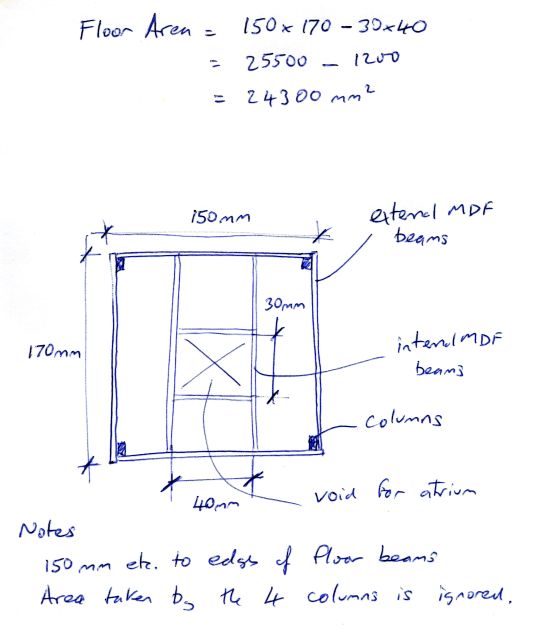 Floor Area = 150 x 170 - 30x40
= 25500 - 1200
= 24300 mm²
150mm
external MDF
beams
30mm
170mm
internal MDF
beams
columns
40mm
void for atrium
Notes
150 mm etc. to edge of floor beams
Area taken by the 4 columns is ignored.